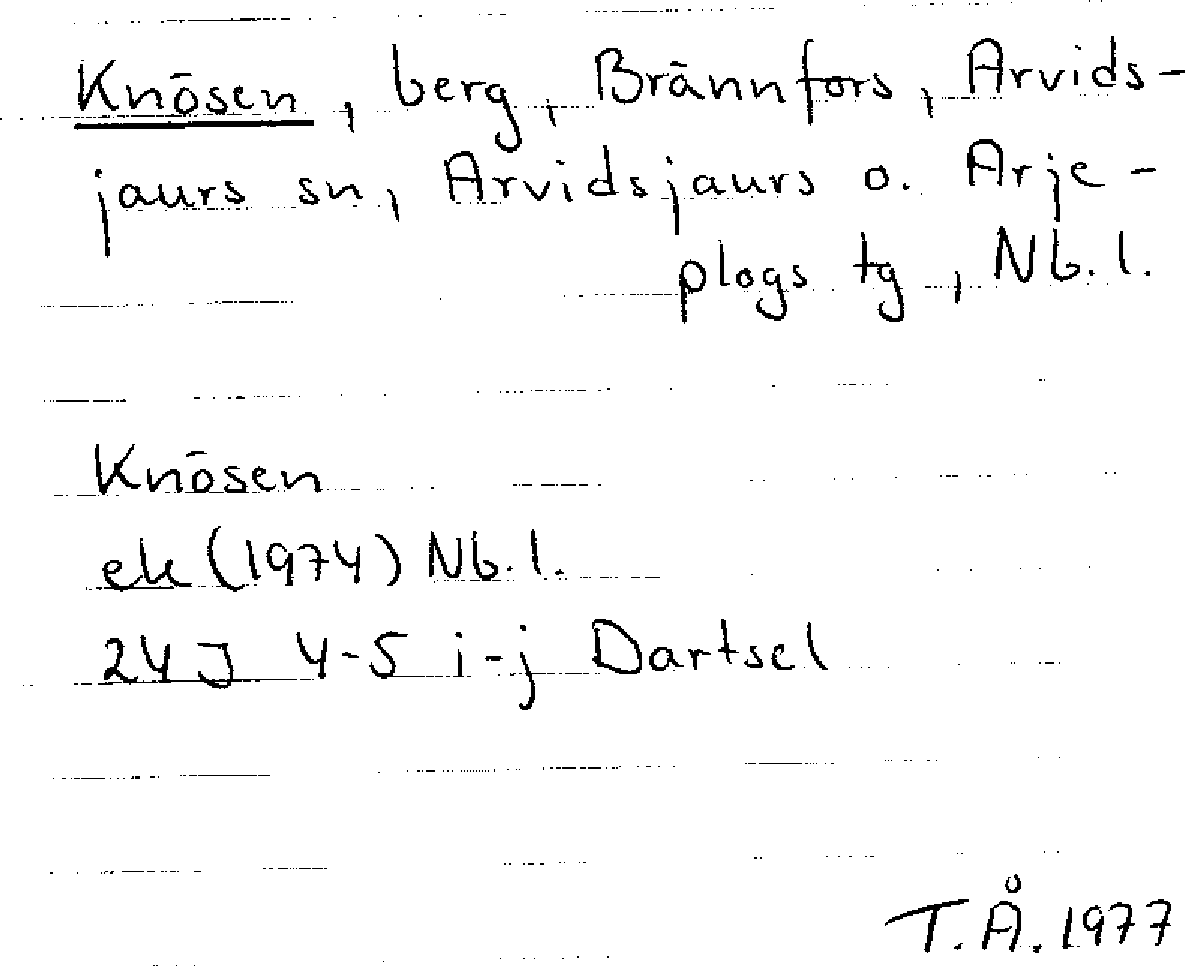 Knösen, berg, Brännfors, Arvids-
jaurs sn, Arvidsjaurs o. Arje-
plogs tg, Nb. l.
Knösen
ek (1974) Nb. l.
24J 4-5 i-j Dartsel
T.Å. 1977